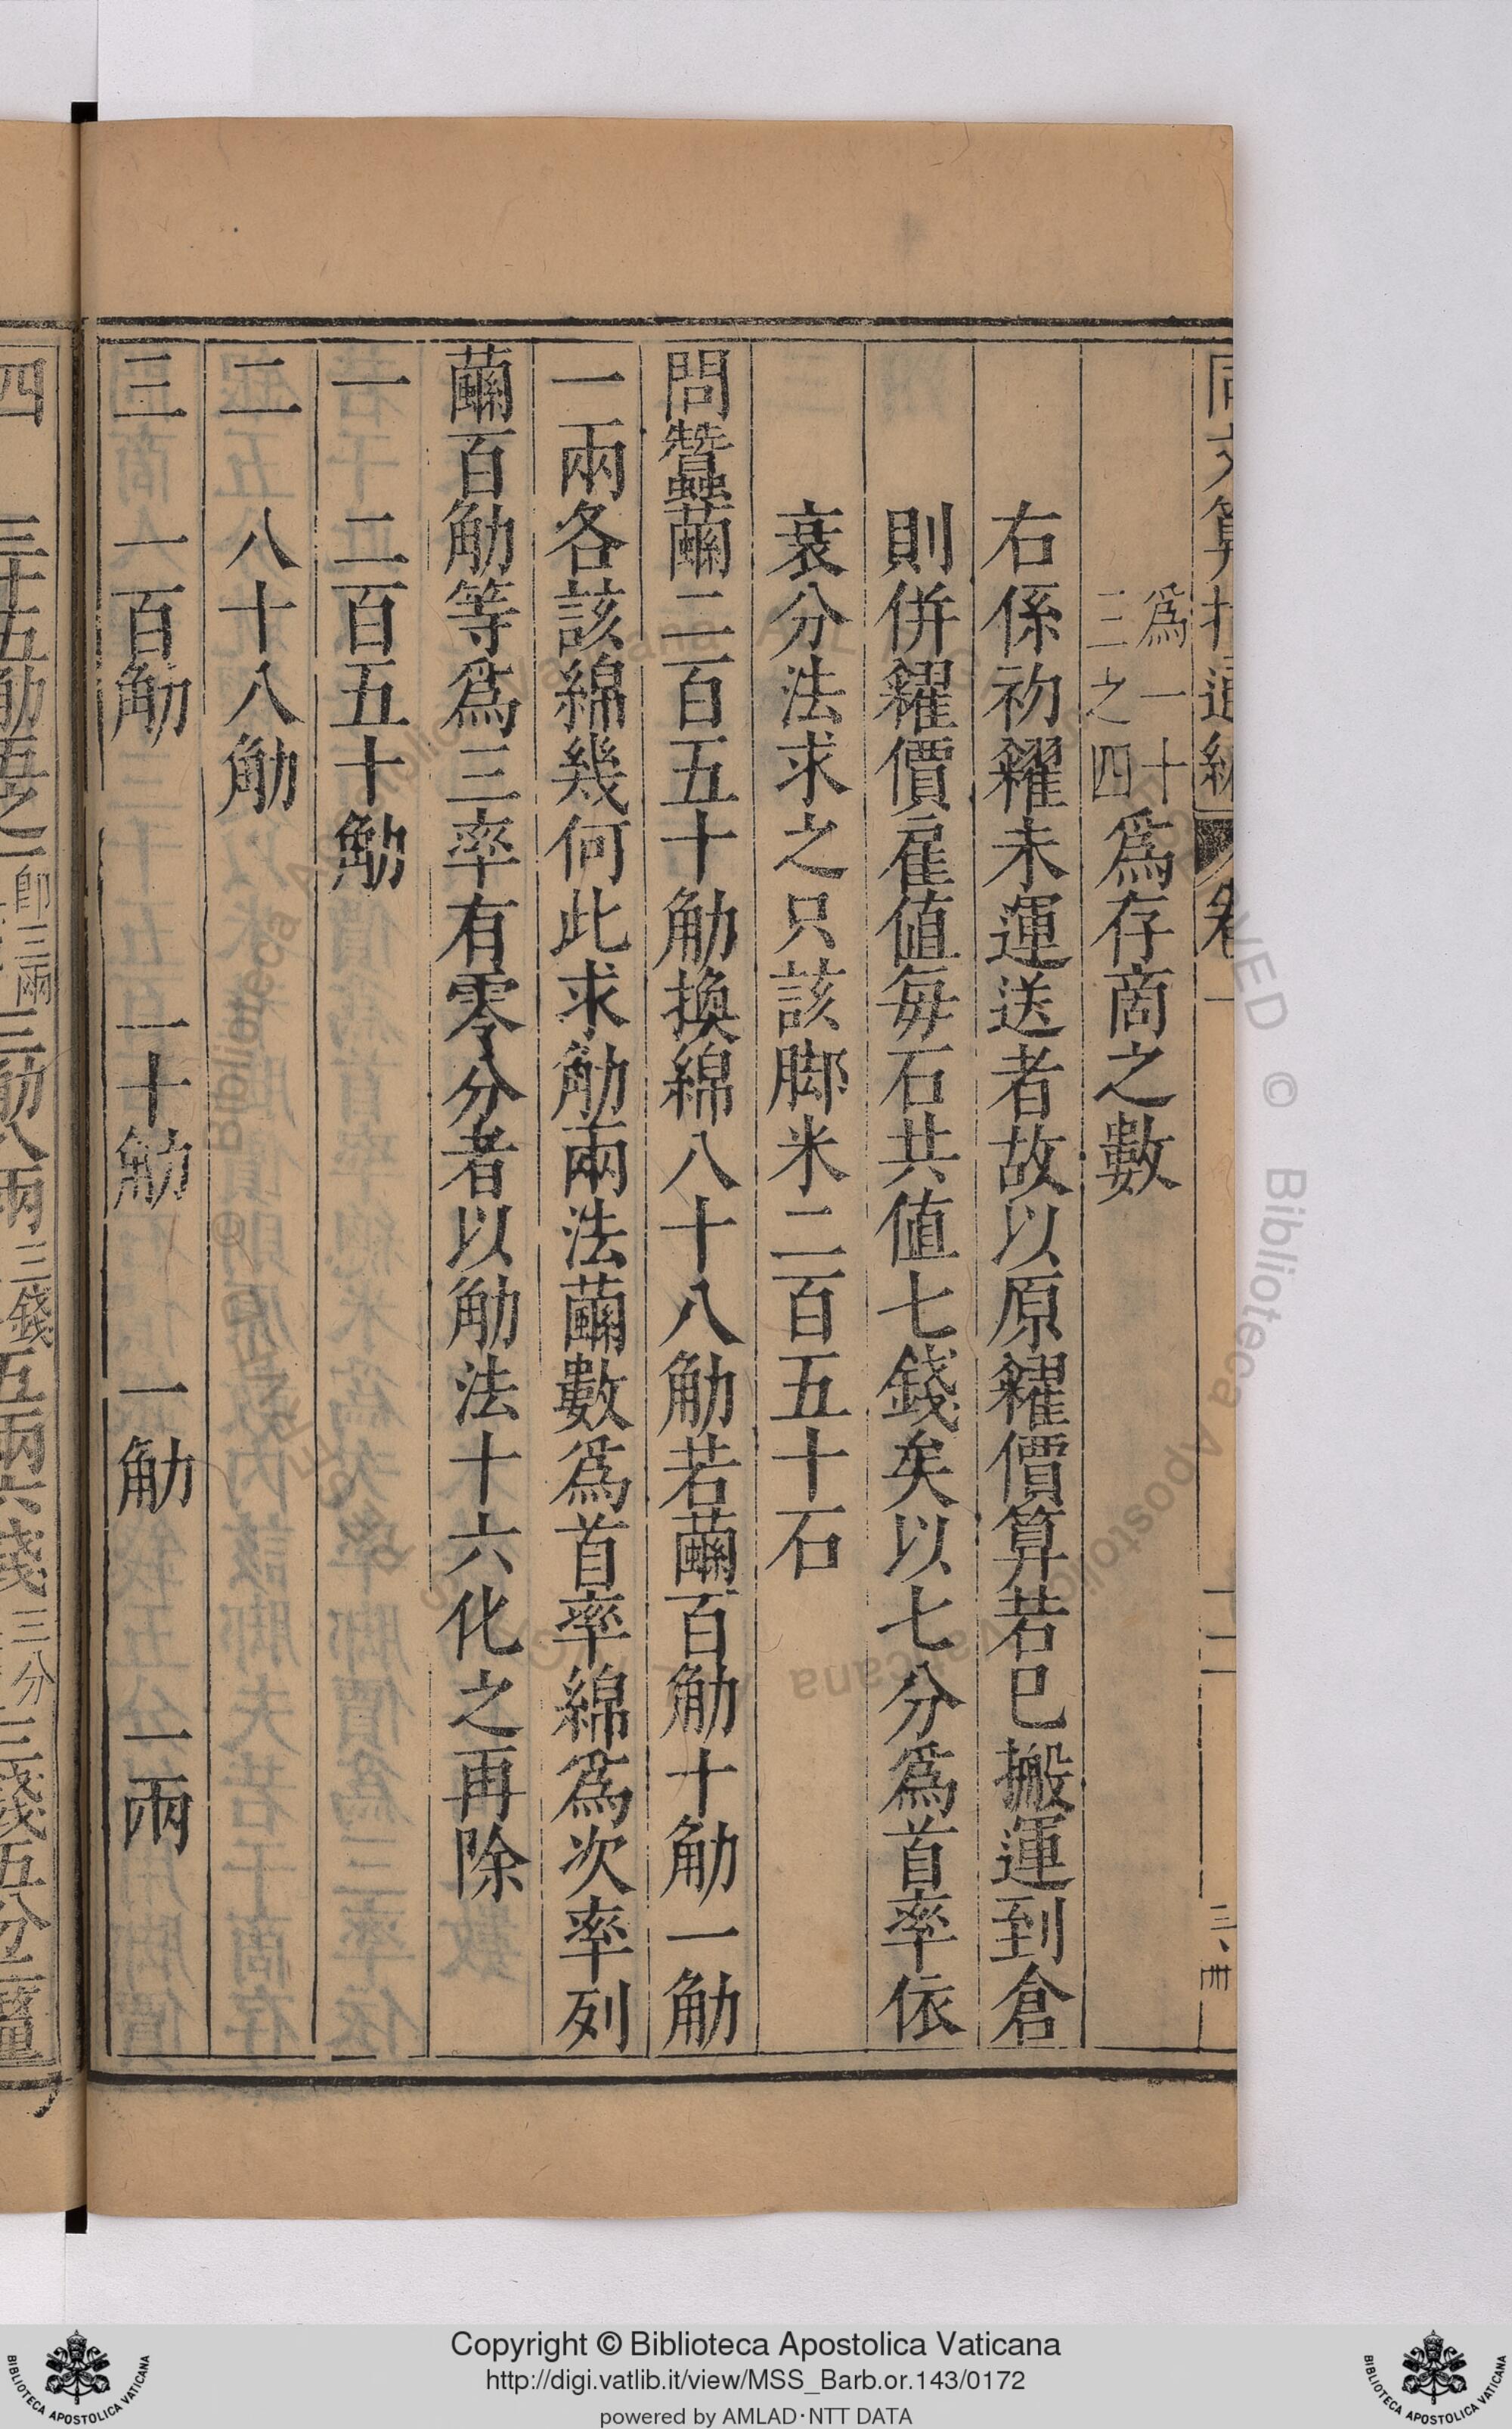 同文算指通編 卷一 十二 三、卅
爲一十
三之四爲存商之數
右係初糴未運送者故以原糴價算若已搬運到倉
則併糴價雇值每石共值七錢矣以七分爲首率依
衰分法求之只該脚米二百五十石
問蠶繭二百五十觔換綿八十八觔若繭百觔十觔一觔
一兩各該綿幾何此求觔兩法繭數爲首率綿爲次率列
繭百觔等爲三率有零分者以觔法十六化之再除
一 二百五十觔
二 八十八觔
三 一百觔 一十觔 一觔 一兩
四 三十五觔五之一即三兩三觔八兩三錢五兩六錢三分三錢五分二釐
Copyright © Biblioteca Apostolica Vaticana
http://digi.vatlib.it/view/MSS_Barb.or.143/0172
powered by AMLAD·NTT DATA
BIBLIOTECA APOSTOLICA VATICANA
BIBLIOTECA APOSTOLICA VATICANA